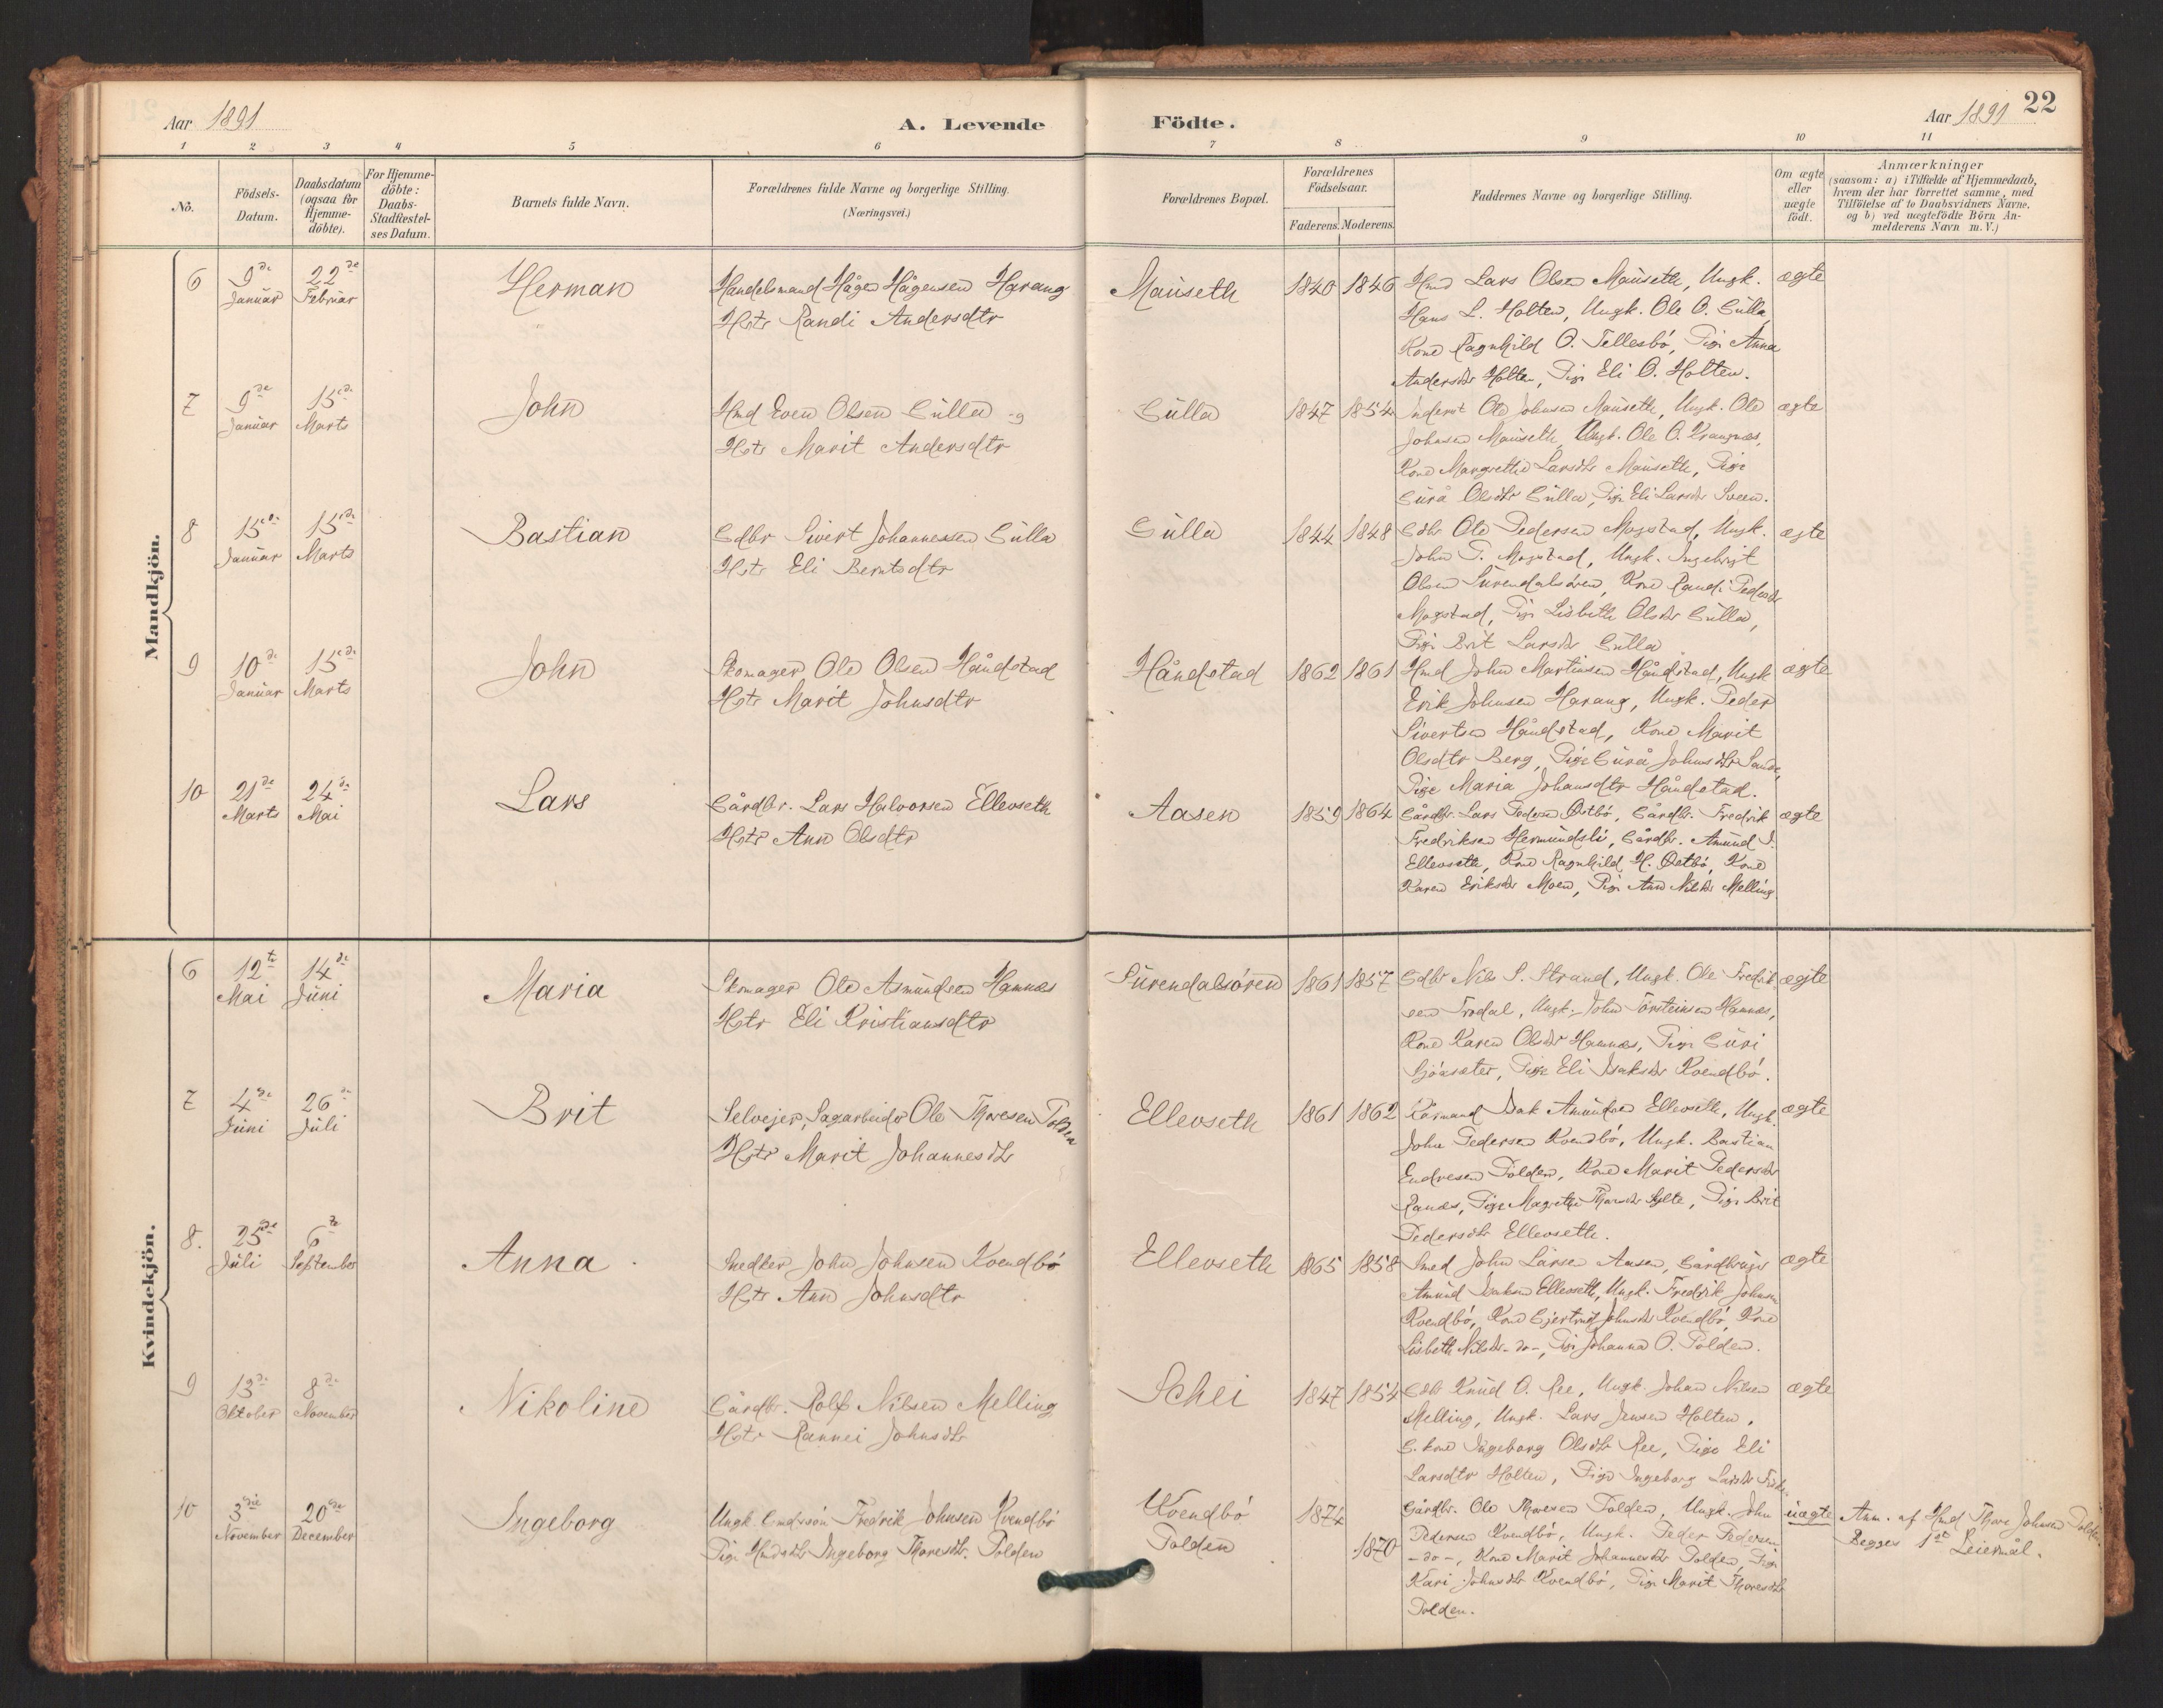 Aar 1891
A. Levende
Födte.
Aar 1891
22
1 2 3 4 5 6 7 8 9 10 11
No.
Födsels-
Datum.
Daabsdatum
(ogsaa for
Hjemme-
döbte).
For Hjemme-
döbte:
Daabs-
Stadfæstel-
ses Datum.
Barnets fulde Navn.
Forældrenes fulde Navne og borgerlige Stilling.
(Næringsvei.)
Forældrenes Bopæl.
Forældrenes
Födselsaar.
Faderens. Moderens.
Faddernes Navne og borgerlige Stilling.
Om ægte
eller
uægte
födt.
Anmærkninger
(saasom: a) i Tilfælde af Hjemmedaab,
hvem der har forrettet samme, med
Tilföielse af to Daabsvidners Navne.
og b) ved uægtefödte Börn An-
melderens Navn m. V.)
Mandkjön.
6
9de
Januar
22de
Februar
Herman
Handelsmand Hågen Hågensen Harang
Hstr Randi Andersdtr
Mauseth
1840 1846
Hmd Lars Olsen Mauseth, Ungk.
Hans L. Holten, Ungk. Ole O. Gulla,
Kone Ragnhild O. Tellesbö, Pige Anna
Andersdtr Holten, Pige Eli O. Holten.
ægte
7
9de
Januar
15de
Marts
John
Hmd Even Olsen Gulla og
Hstr Marit Andersdtr
Gulla
1847 1854
Inderst Ole Johnsen Mauseth, Ungk. Ole
Johnsen Mauseth, Ungk. Ole O. Krangnæs,
Kone Margrethe Larsdtr Mauseth, Pige
Gurå Olsdtr Gulla, Pige Eli Larsdtr Sveen.
ægte
8
15de
Januar
15de
Marts
Bastian
Gdbr Sivert Johannessen Gulla
Hstr Eli Berntsdtr
Gulla
1844 1848
Gdbr Ole Pedersen Mogstad, Ungk.
John P. Mogstad, Ungk. Ingebrigt
Olsen Surendalsören, Kone Randi Pedersdtr
Mogstad, Pige Lisbeth Olsdtr Gulla,
Pige Brit Larsdtr Gulla
ægte
9
10de
Januar
15de
Marts
John
Skomager Ole Olsen Håndstad
Hstr Marit Johnsdtr
Håndstad
1862 1861
Hmd John Martinsen Håndstad, Ungk
Erik Johnsen Harang, Ungk. Peder
Sivertsen Håndstad, Kone Marit
Olsdtr Berg, Pige Gurå Johnsdtr Sande,
Pige Maria Johansdtr Håndstad.
ægte
10
21de
Marts
24de
Mai
Lars
Gårdbr. Lars Halvorsen Ellevseth
Hstr Ann Olsdtr
Aasen
1859 1864
Gårdbr. Lars Pedersen Östbö, Gårdbr. Fredrik
Fredriksen Hermundsli, Gårdbr. Amund I.
Ellevseth, Kone Ragnhild H. Östbö, Kone
Karen Eriksdtr Moen, Pige Ann Nilsdtr Melling.
ægte
Kvindekjön.
6
12te
Mai
14de
Juni
Maria
Skomager Ole Asmundsen Hamnes
Hstr Eli Kristiansdtr
Surendalsören
1861 1857
Gdbr Nils S. Strand, Ungk. Ole Fredrik-
sen Frodal, Ungk. John Torsteinsen Hamnes,
Kone Karen Olsdtr Hamnes, Pige Guri
Sjöasæter, Pige Eli Isaksdtr Kvendbö.
ægte
7
4de
Juni
26de
Juli
Brit
Selvejer, Sagarbeider Ole Thoresen Polden
Hstr Marit Johannesdtr
Ellevseth
1861 1862
Kårmand Isak Amundsen Ellevseth, Ungk.
John Pedersen Kvendbö, Ungk. Bastian
Endresen Polden, Kone Marit Pedersdtr
Ranæs, Pige Magrethe Thoresdtr Hjelte, Pige Brit
Pedersdtr Ellevseth.
ægte
8.
25de
Juli
6te
September
Anna
Snedker John Johnsen Kvendbö
Hstr Ann Johnsdtr
Ellevseth
1865 1858
Smed John Larsen Aasen, Gårdbruger
Amund Isaksen Ellevseth, Ungk. Fredrik Johnsen
Kvendbö, Kone Gjertrud Johnsdtr Kvendbö, Kone
Lisbeth Nilsdtr -do-, Pige Johanna O. Polden.
ægte
9
13de
Oktober
8de
November
Nikoline
Gårdbr. Rolf Nilsen Melling
Hstr Rannei Johnsdtr
Schei
1847 1854
Gdbr Knud O. Ree, Ungk. Johan Nilsen
Melling, Ungk. Lars Jensen Holten,
G. kone Ingeborg Olsdtr Ree, Pige Eli
Larsdtr Holten, Pige Ingeborg Larsdtr
ægte
10
3die
November
20de
December
Ingeborg
Ungk. Fredrik Johnsen Kvendbö
Pige Hmdsdtr Ingeborg Thoresdtr. Polden
Kvendbö
Polden
1874
1870
Gårdbr. Ole Thoresen Polden, Ungk. John
Pedersen Kvendbö, Ungk. Peder Pedersen
-do-, Kone Marit Johannesdtr Polden, Pige
Kari Johnsdtr Kvendbö, Pige Marit Thoresdtr
Polden.
uægte
Anm. af Hmd Thore Johnsen Polden
Begges 1ste Leiermål.